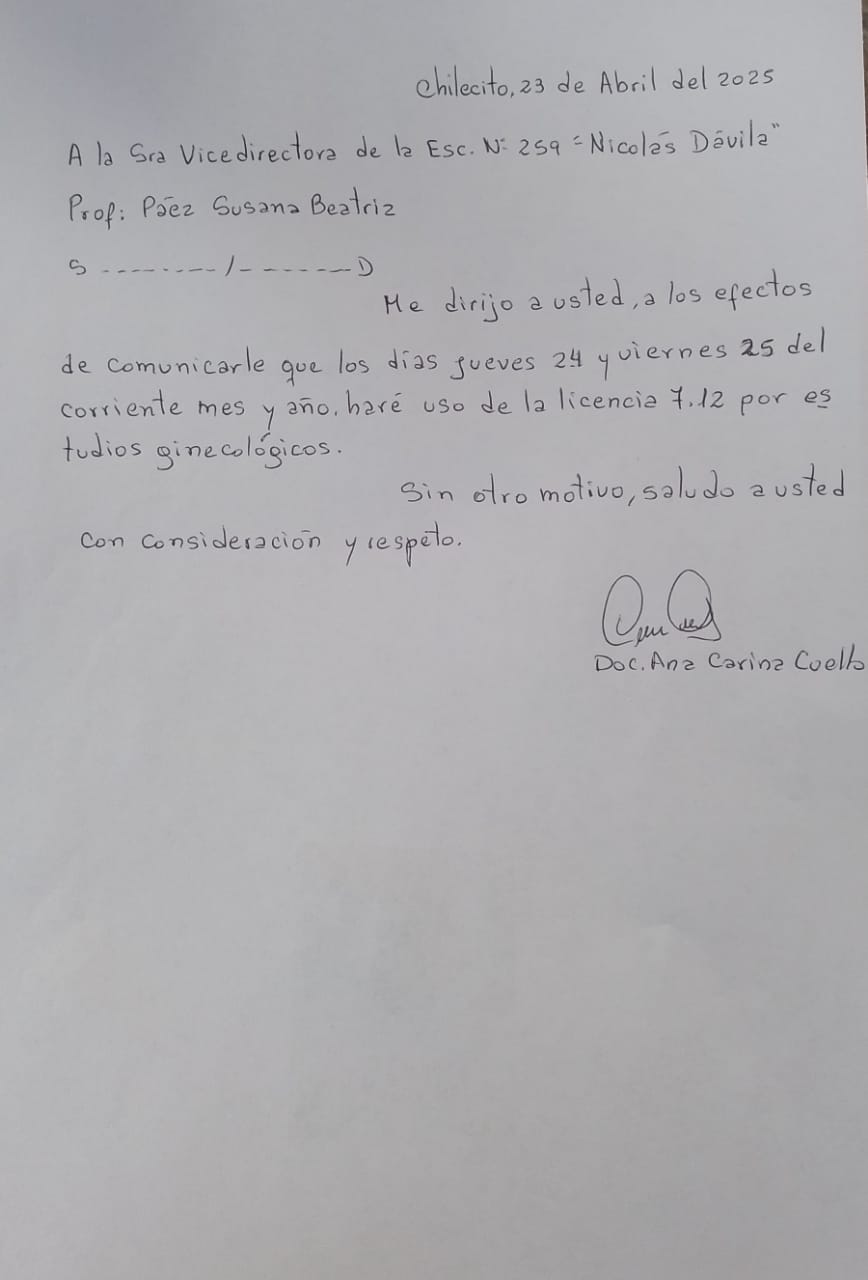 Chilecito, 23 de Abril del 2025
A la Sra Vicedirectora de la Esc. N° 259 "Nicolás Dávila"
Prof: Páez Susana Beatriz
S --------/-------D
Me dirijo a usted, a los efectos
de comunicarle que los días jueves 24 y viernes 25 del
corriente mes y año, haré uso de la licencia 7.12 por es
tudios ginecológicos.
Sin otro motivo, saludo a usted
con consideración y respeto.
Doc. Ana Carina Cuello